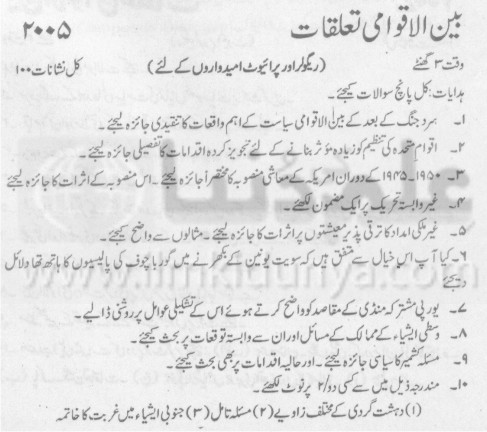 بین الاقوامی تعلقات ۲۰۰۵
وقت ۳ گھنٹے (ریگولر اور پرائیوٹ امیدواروں کے لئے) کل نشانات ۱۰۰
ہدایات: کل پانچ سوالات کیجئے۔
۱۔ سرد جنگ کے بعد کے بین الاقوامی سیاست کے اہم واقعات کا تنقیدی جائزہ لیجئے۔
۲۔ اقوام متحدہ کی تنظیم کو زیادہ مؤثر بنانے کے لئے تجویز کردہ اقدامات کا تفصیلی جائزہ لیجئے۔
۳۔ ۱۹۵۰۔۱۹۴۵ کے دوران امریکہ کے معاشی منصوبہ کا مختصراً جائزہ لیجئے۔ اس منصوبہ کے اثرات کا جائزہ لیجئے۔
۴۔ غیر وابستہ تحریک پر ایک مضمون لکھئے۔
۵۔ غیر ملکی امداد کا ترقی پذیر معیشتوں پر اثرات کا جائزہ لیجئے۔ مثالوں سے واضح کیجئے۔
۶۔ کیا آپ اس خیال سے متفق ہیں کہ سویت یونین کے بکھرنے میں گورباچوف کی پالیسیوں کا ہاتھ تھا دلائل
دیجئے
۷۔ یورپی مشترکہ منڈی کے مقاصد کو واضح کرتے ہوئے اس کے تشکیلی عوامل پر روشنی ڈالیے۔
۸۔ وسطی ایشیاء کے ممالک کے مسائل اور ان سے وابستہ توقعات پر بحث کیجئے۔
۹۔ مسئلہ کشمیر کا سیاسی جائزہ لیجئے۔ اور حالیہ اقدامات پر بھی بحث کیجئے۔
۱۰۔ مندرجہ ذیل میں سے کسی دو/۲ پر نوٹ لکھئے۔
(۱) دہشت گردی کے مختلف زاویے (۲) مسئلہ تامل (۳) جنوبی ایشیاء میں غربت کا خاتمہ
علم کی دنیا
www.ilmkidunya.com